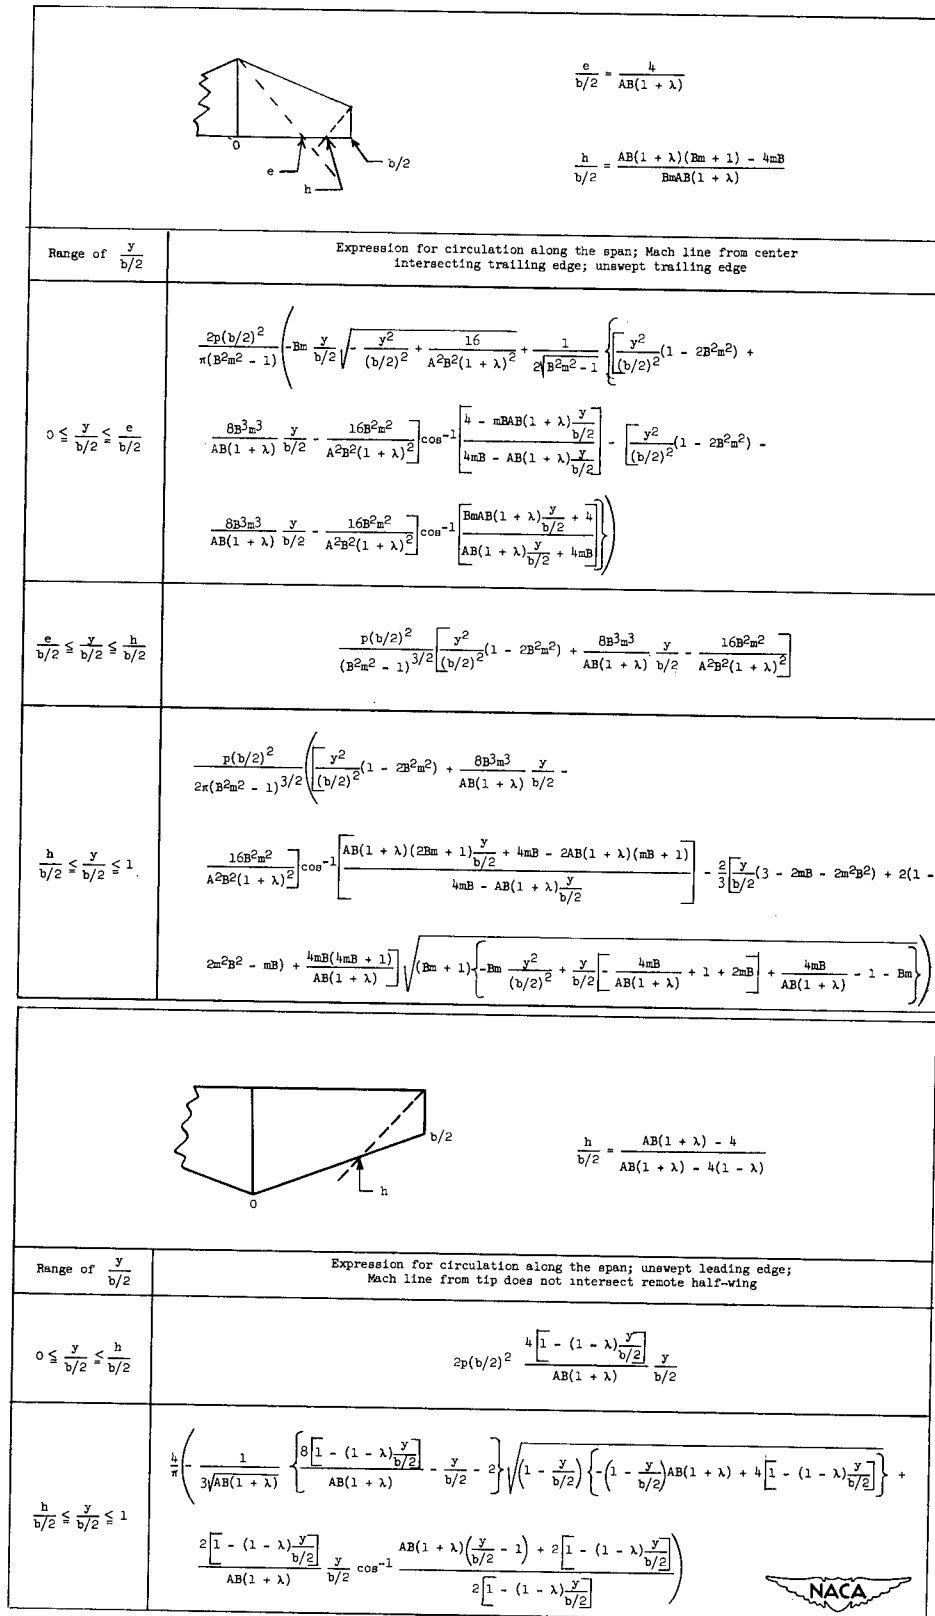 e/(b/2) = 4/(AB(1 + λ))
h/(b/2) = (AB(1 + λ)(Bm + 1) - 4mB)/(BmAB(1 + λ))
0
e
h
b/2
Range of y/(b/2)
Expression for circulation along the span; Mach line from center
intersecting trailing edge; unswept trailing edge
0 ≦ y/(b/2) ≦ e/(b/2)
2p(b/2)²/(π(B²m² - 1)) (-Bm y/(b/2) √(- y²/(b/2)² + 16/(A²B²(1 + λ)²)) + 1/(2√(B²m² - 1)) {[y²/(b/2)² (1 - 2B²m²) +
8B³m³/(AB(1 + λ)) y/(b/2) - 16B²m²/(A²B²(1 + λ)²)] cos⁻¹[(4 - mBAB(1 + λ) y/(b/2))/(4mB - AB(1 + λ) y/(b/2))] - [y²/(b/2)² (1 - 2B²m²) -
8B³m³/(AB(1 + λ)) y/(b/2) - 16B²m²/(A²B²(1 + λ)²)] cos⁻¹[(BmAB(1 + λ) y/(b/2) + 4)/(AB(1 + λ) y/(b/2) + 4mB)]})
e/(b/2) ≦ y/(b/2) ≦ h/(b/2)
p(b/2)²/(B²m² - 1)^(3/2) [y²/(b/2)² (1 - 2B²m²) + 8B³m³/(AB(1 + λ)) y/(b/2) - 16B²m²/(A²B²(1 + λ)²)]
h/(b/2) ≦ y/(b/2) ≦ 1
p(b/2)²/(2π(B²m² - 1)^(3/2)) ([y²/(b/2)² (1 - 2B²m²) + 8B³m³/(AB(1 + λ)) y/(b/2) -
16B²m²/(A²B²(1 + λ)²)] cos⁻¹[(AB(1 + λ)(2Bm + 1) y/(b/2) + 4mB - 2AB(1 + λ)(mB + 1))/(4mB - AB(1 + λ) y/(b/2))] - 2/3 [y/(b/2) (3 - 2mB - 2m²B²) + 2(1 -
2m²B² - mB) + 4mB(4mB + 1)/(AB(1 + λ))] √((Bm + 1){-Bm y²/(b/2)² + y/(b/2) [- 4mB/(AB(1 + λ)) + 1 + 2mB] + 4mB/(AB(1 + λ)) - 1 - Bm}))
b/2
h
0
h/(b/2) = (AB(1 + λ) - 4)/(AB(1 + λ) - 4(1 - λ))
Range of y/(b/2)
Expression for circulation along the span; unswept leading edge;
Mach line from tip does not intersect remote half-wing
0 ≦ y/(b/2) ≦ h/(b/2)
2p(b/2)² 4[1 - (1 - λ) y/(b/2)]/(AB(1 + λ)) y/(b/2)
h/(b/2) ≦ y/(b/2) ≦ 1
4/π (- 1/(3√(AB(1 + λ))) {8[1 - (1 - λ) y/(b/2)]/(AB(1 + λ)) - y/(b/2) - 2} √((1 - y/(b/2)) {-(1 - y/(b/2))AB(1 + λ) + 4[1 - (1 - λ) y/(b/2)]}) +
2[1 - (1 - λ) y/(b/2)]/(AB(1 + λ)) y/(b/2) cos⁻¹ (AB(1 + λ)(y/(b/2) - 1) + 2[1 - (1 - λ) y/(b/2)])/(2[1 - (1 - λ) y/(b/2)]))
NACA